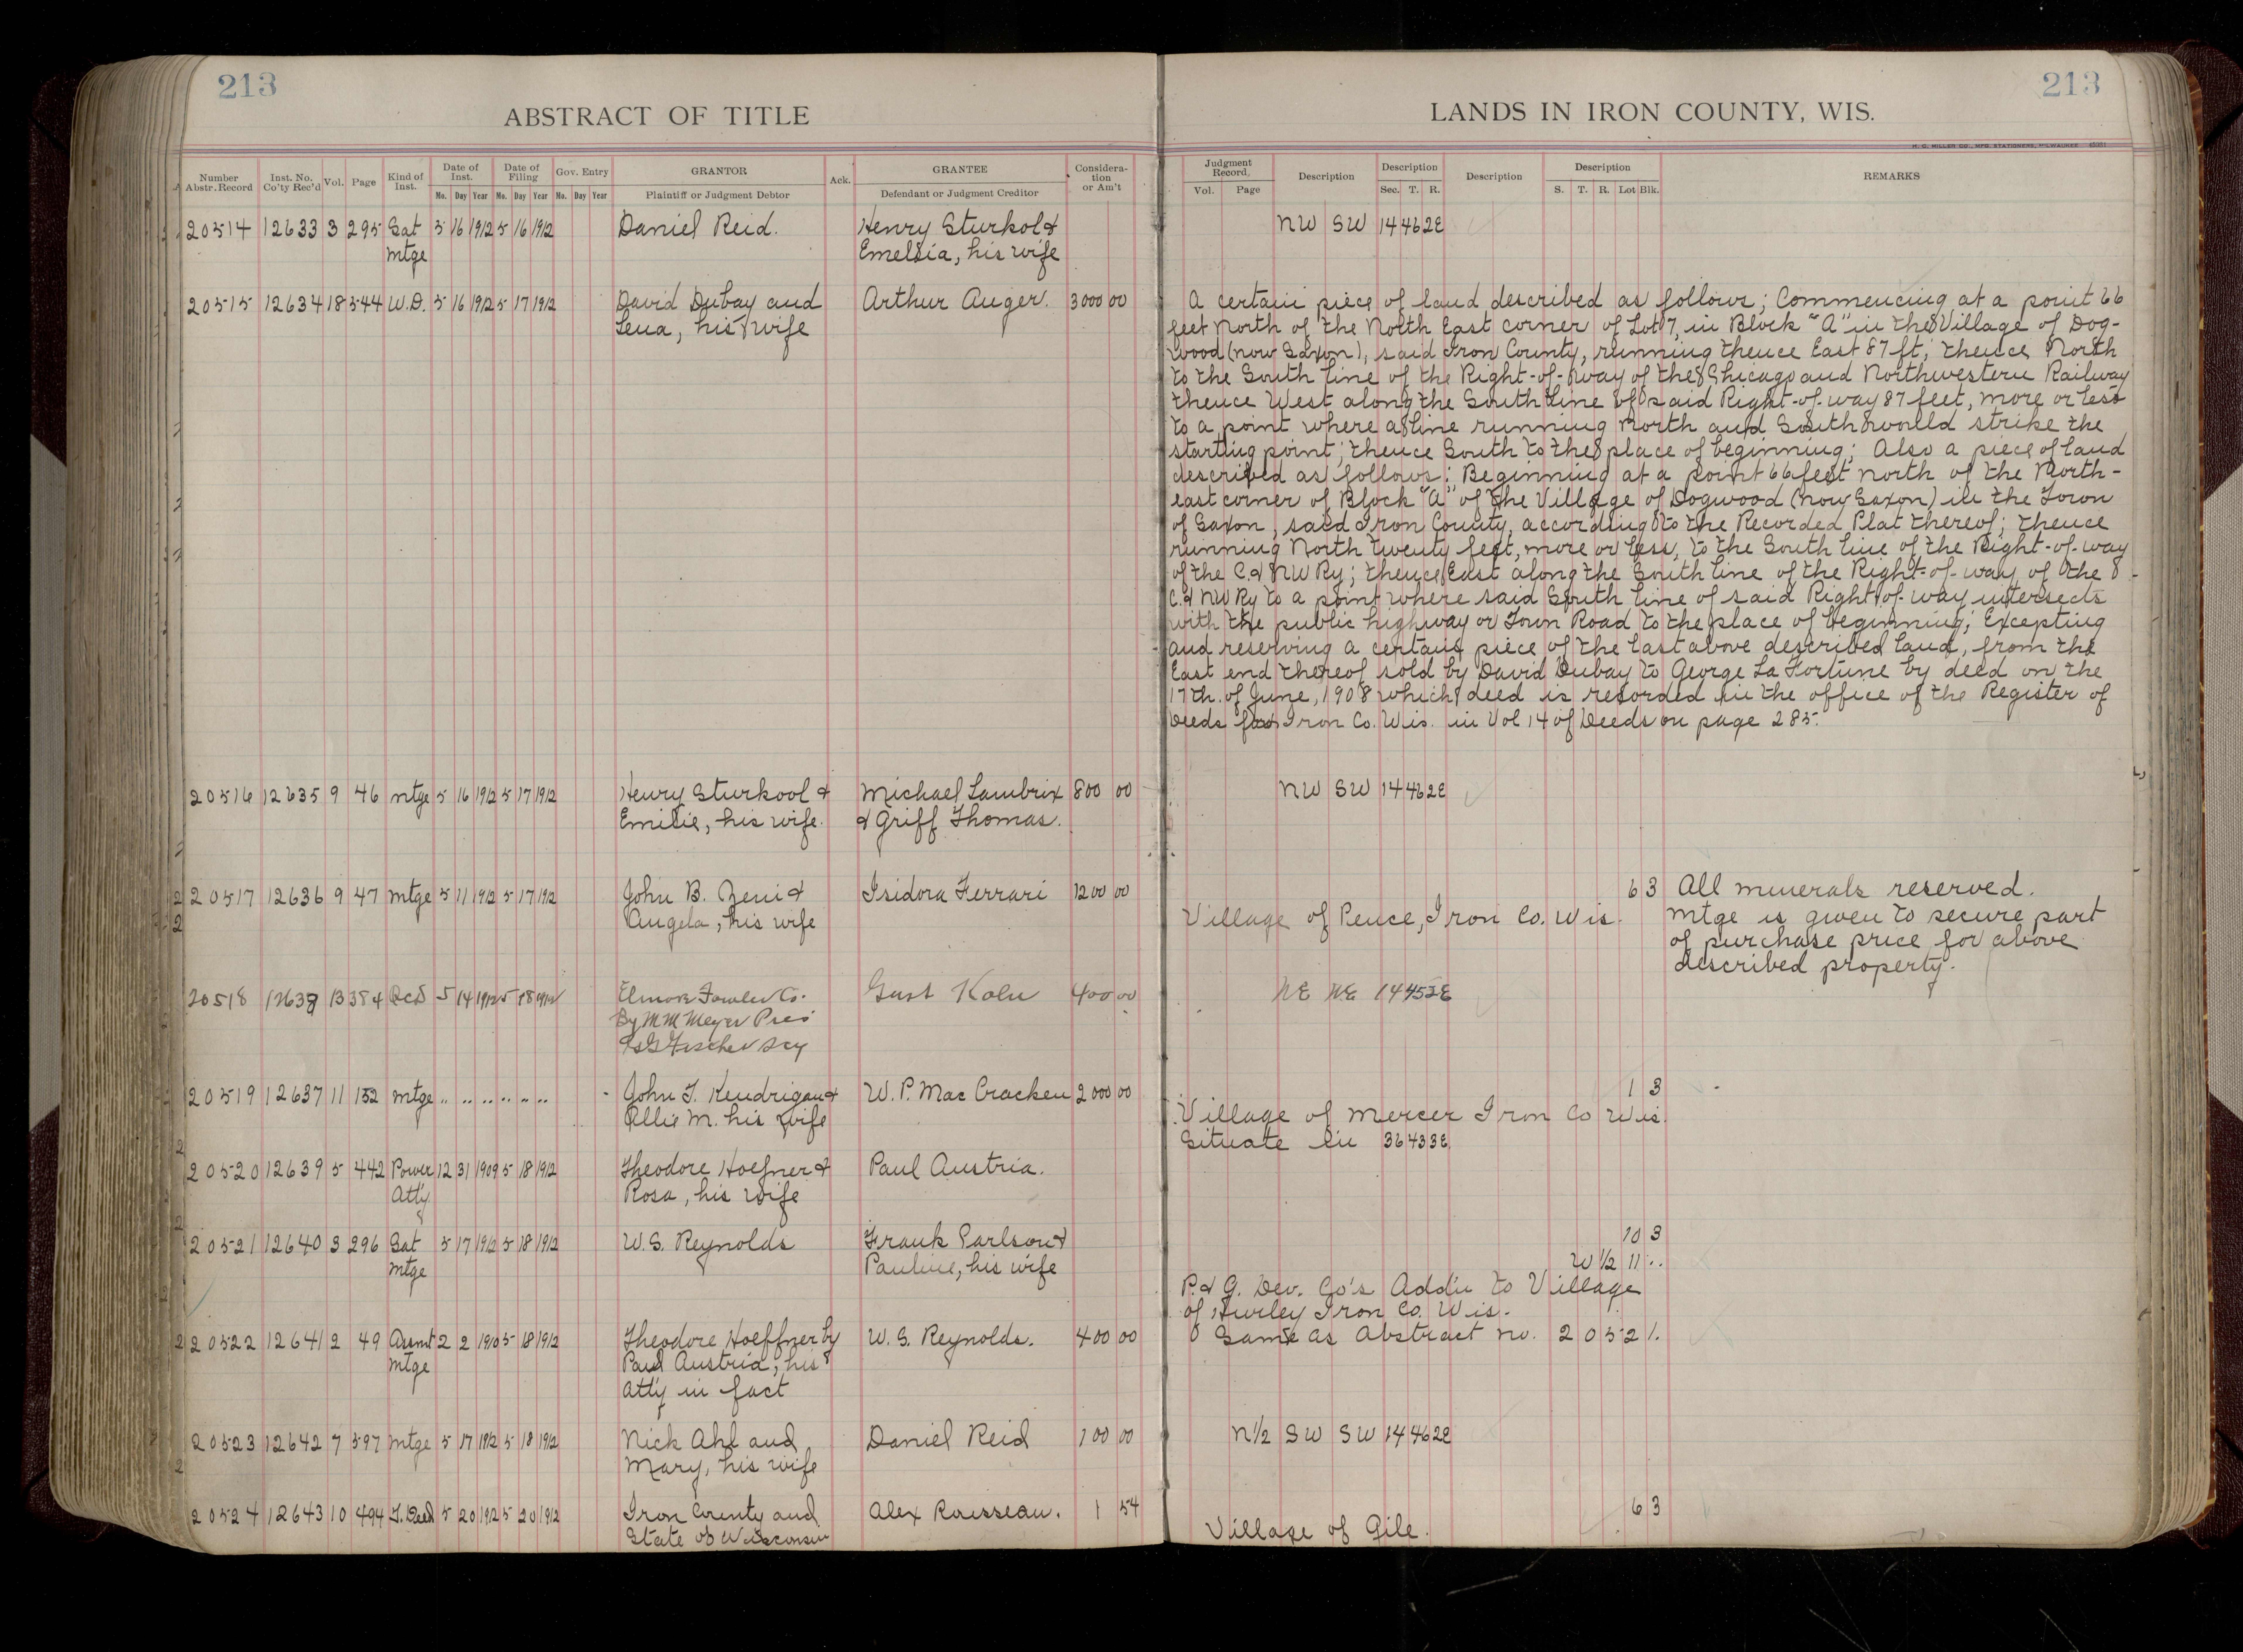 213
213
ABSTRACT OF TITLE
LANDS IN IRON COUNTY, WIS.
H. C. MILLER CO., MFG. STATIONERS, MILWAUKEE
Number Abstr. Record Inst. No. Co'ty Rec'd Vol. Page Kind of Inst. Date of Inst. Date of Filing Gov. Entry GRANTOR Ack. GRANTEE Considera-tion or Am't
No. Day Year No. Day Year No. Day Year Plaintiff or Judgment Debtor Defendant or Judgment Creditor
Judgment Record. Description Description Description Description REMARKS
Vol. Page Sec. T. R. S. T. R. Lot Blk.
20514 12633 3 295 Sat 5 16 1912 5 16 1912 Daniel Reid. Henry Sturkol & NW SW 14 46 2E
mtge Emelsia, his wife
20515 12634 18 544 W.D. 5 16 1912 5 17 1912 David Dubay and Arthur Auger. 3000 00
Lena, his wife
A certain piece of land described as follows; Commencing at a point 66
feet North of the North East corner of Lot 7, in Block "A" in the Village of Dog-
wood (now Saxon), said Iron County, running thence East 87 ft, thence North
to the South line of the Right-of-way of the Chicago and Northwestern Railway
thence West along the South line of said Right-of-way 87 feet, more or less
to a point where a line running North and South would strike the
starting point; thence South to the place of beginning; Also a piece of land
described as follows: Beginning at a point 66 feet north of the North-
east corner of Block "A" of the Village of Dogwood (now Saxon) in the Town
of Saxon, said Iron County, according to the Recorded Plat thereof; thence
running North twenty feet, more or less, to the South line of the Right-of-way
of the C. & NW Ry; thence East along the South line of the Right-of-way of the
C. & NW Ry to a point where said South line of said Right-of-way intersects
with the public highway or Town Road to the place of beginning; Excepting
and reserving a certain piece of the last above described land, from the
East end thereof sold by David Dubay to George La Fortune by deed on the
17th. of June, 1908 which deed is recorded in the office of the Register of
Deeds for Iron Co. Wis. in Vol 14 of Deeds on page 285.
20516 12635 9 46 mtge 5 16 1912 5 17 1912 Henry Sturkool & Michael Lambrix 800 00 NW SW 14 46 2E
Emilie, his wife. & Griff Thomas.
20517 12636 9 47 mtge 5 11 1912 5 17 1912 John B. Zeni & Isidora Ferrari 1200 00 6 3 All minerals reserved.
Angela, his wife Village of Pence, Iron Co. Wis. Mtge is given to secure part
of purchase price for above
described property.
20518 13 384 5 14 1912 5 18 1912 Elmore Fowler Co. Gust Kolu 400 00 NE NE 14 45 2E
By M M Meyer Pres
Fischer Scy
20519 12637 11 152 mtge " " " " " " John T. Kendrigan & W. P. Mac Cracken 2000 00 1 3
Allie M. his wife Village of Mercer Iron Co Wis.
Situate in 36 43 3E
20520 12639 5 442 Power 12 31 1909 5 18 1912 Theodore Hoefner & Paul Austria.
Atty Rosa, his wife
20521 12640 3 296 Sat 5 17 1912 5 18 1912 W. S. Reynolds Frank Carlson & 10 3
mtge Pauline, his wife W 1/2 11 "
P. & G. Dev. Co's Addn to Village
of Hurley Iron Co. Wis.
20522 12641 2 49 Assmt 2 2 1910 5 18 1912 Theodore Hoeffner by W. S. Reynolds. 400 00 Same as Abstract no. 20521.
mtge Paul Austria, his
atty in fact
20523 12642 7 597 mtge 5 17 1912 5 18 1912 Nick Ahl and Daniel Reid 100 00 N1/2 SW SW 14 46 2E
Mary, his wife
20524 12643 10 494 T. Deed 5 20 1912 5 20 1912 Iron County and Alex Rousseau. 1 54 6 3
State of Wisconsin Village of Gile.